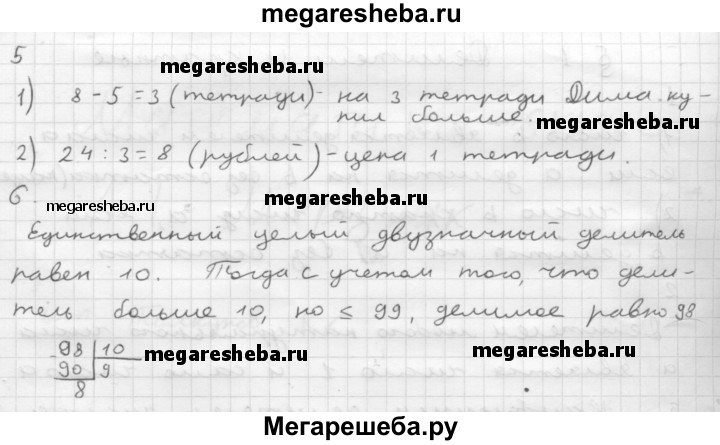 megaresheba.ru
5
megaresheba.ru
1) 8 - 5 = 3 (тетради) - на 3 тетради Дима ку-
пил больше.
megaresheba.ru
2) 24 : 3 = 8 (рублей) - цена 1 тетради.
6.
megaresheba.ru
Единственный целый двузначный делитель
равен 10. Тогда с учетом того, что дели-
тель больше 10, но ≤ 99, делимое равно 98
98 | 10
90 | 9
8
megaresheba.ru
megaresheba.ru
Мегарешеба.ру